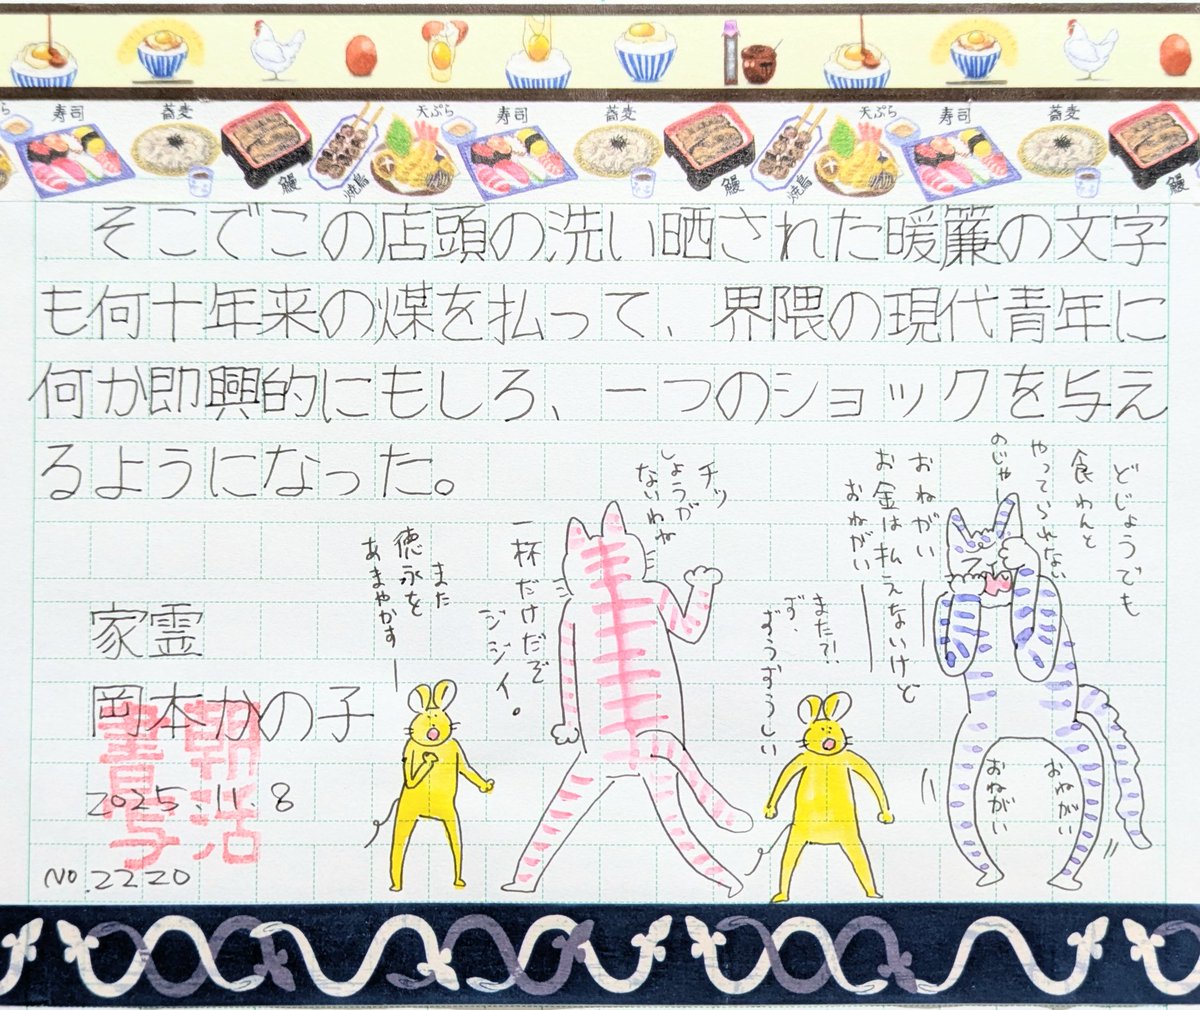 寿司 蕎麦 鰻 焼鳥 天ぷら 寿司 蕎麦 鰻 焼鳥 天ぷら 寿司 蕎麦 鰻
そこでこの店頭の洗い晒された暖簾の文字
も何十年来の煤を払って、界隈の現代青年に
何か即興的にもしろ、一つのショックを与え
るようになった。
どじょうでも
食わんと
やってられない
のじゃー
おねがい
お金は払えないけど
おねがい
おねがい
おねがい
また?!
ず、
ずうずうしい
チッ
しょうが
ないわね
一杯だけだぞ
ジジイ。
また
徳永を
あまやかす
家霊
岡本かの子
朝活
書写
2025.11.8
No.2220